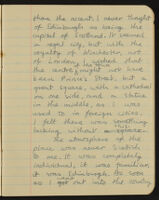 than the ascent. I never thought
of Edinburgh as being the
capital of Scotland. It seemed
a regal city, but with the
regality of Manchester, not
of London. I wished that
the centre might not have
been Princes Street, but a
great square, with a cathedral
on one side, and a statue
in the middle, as I was
used to in foreign cities.
I felt there was something
lacking without
The atmosphere of the
place was never Scotch
to me. It was completely
individual, it was familiar,
it was Edinburgh. As soon
as I got out into the country